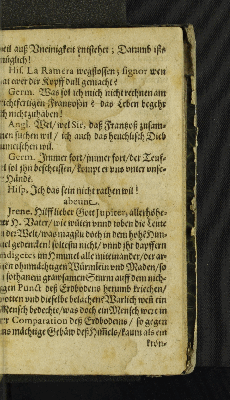 eil auß Vneinigkeit entstehet; Darumb ists
müglich!
Hisp. La Ramera wegflossen; signor wen
hat ewer der Kopff dull gemacht?
Germ. Was sol ich mich nicht rechnen am
leichtfertigen Frantzosn? das Leben begehr
ich nicht zuhaben!
Angl. Wel/wel Sir, daß Frantzoß zusam-
men suchen wil/ ich auch das heuchlisch Dieb
metschen wil.
Germ. Immer fort/immer fort/der Teuf-
el sol ihn bescheissen/kompt er vns vnter vnse-
re Hände.
Hisp. Ich das sein nicht rathen wil!
abeunt.
Irene. Hilff lieber Gott Jupiter, allerhöhe-
ster H. Vater/wie wüten vnnd toben die Leute
in der Welt/was magstu doch in dem hohe Him-
mel gedencken! soltestu nicht/ vnnd ihr dapffern
Indigetes im Himmel alle miteinander/der ar-
men ohnmächtigen Würmlein vnd Maden/so
in sothanem grawsamen Sturm auff dem nich-
tigen Punct deß Erdbodens herumb kriechen/
spotten vnd dieselbe belachen? Warlich wen ein
Mensch bedechte/was doch ein Mensch were in
der Comparation deß Erdbodems/ so gegen
das mächtige Gebäw deß Himels/kaum als ein
krön-